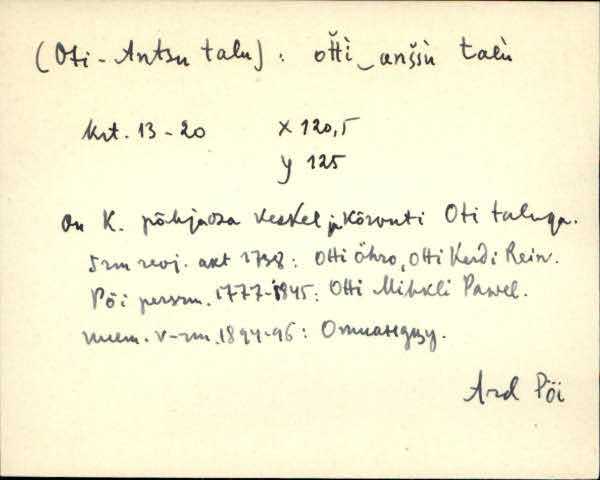 (Oti-Antsu talu) : ot̆t̆ì‿anššù talù
Krt. 13-20 X 120,5
y 125
On K. põhjaosa keskel ja kõrvuti Oti taluga.
Srm revj. akt 1738: Otti Öhro, Otti Kerdi Rein.
Pöi persrm. 1777-1845: Otti Mihkli Pawel.
mem. v-rm. 1894-96: Оттианцу.
Ard Pöi